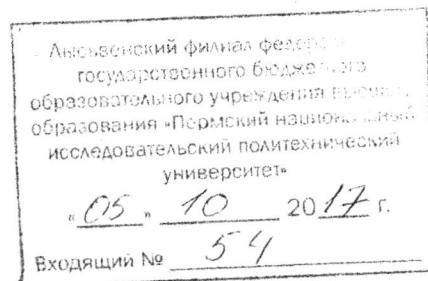 Лысьвенский филиал
государственного бюджетного
образовательного учреждения
образования «Пермский национальный
исследовательский политехнический
университет»
«05» 10 2017 г.
Входящий № 54